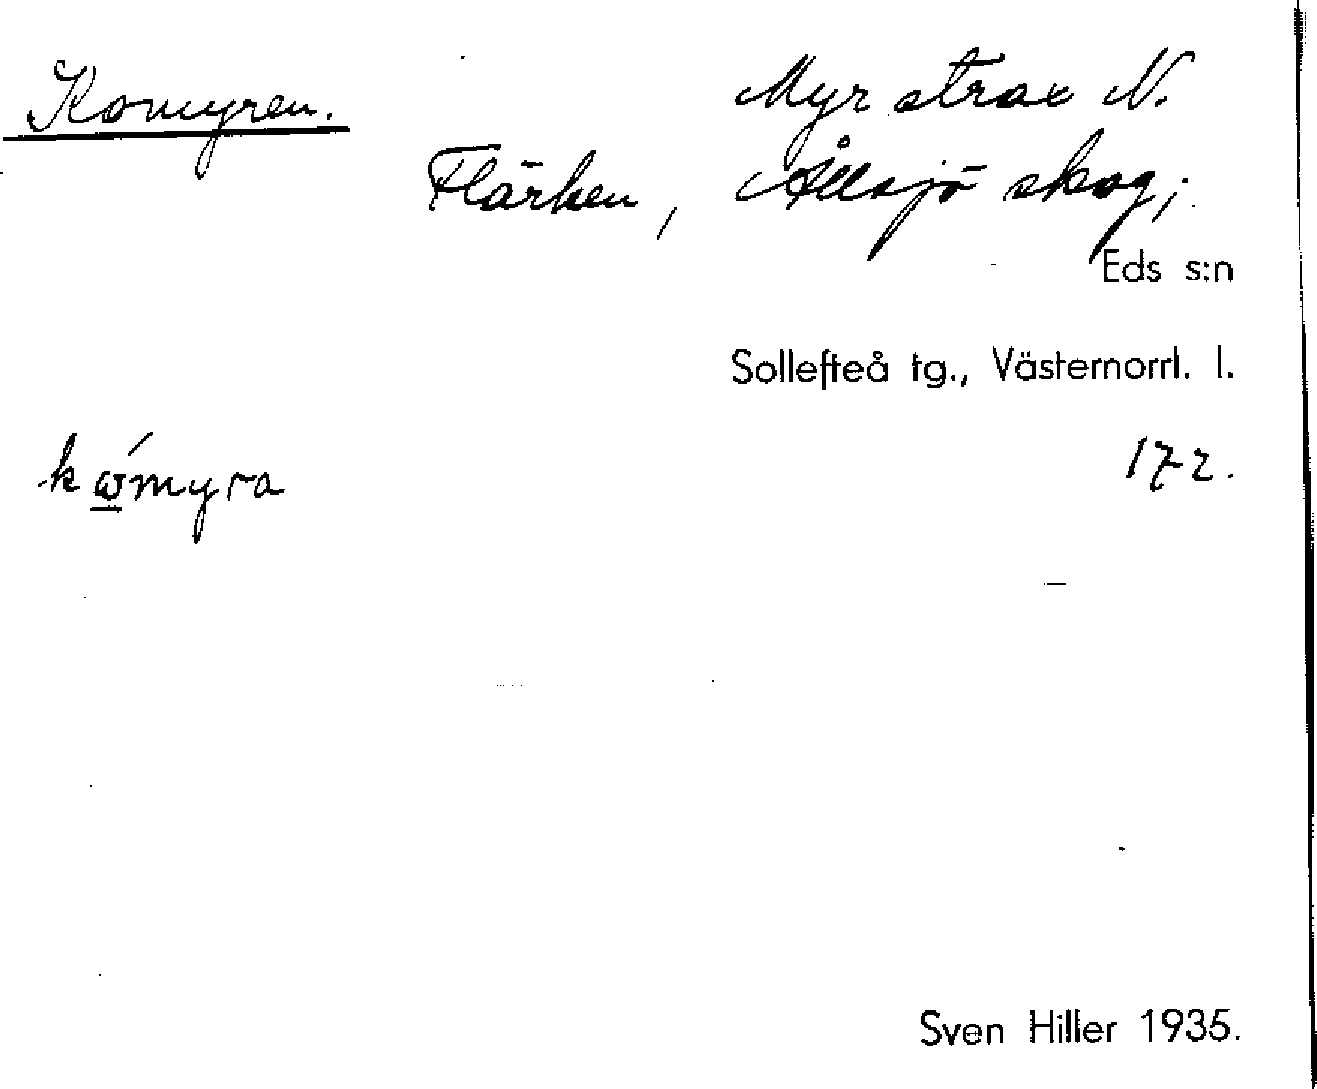 Komyren.
Myr strax N.
Flärken, Ållsjö skog;
Eds s:n
Sollefteå tg., Västernorrl. l.
kώ̲myra
172.
Sven Hiller 1935.